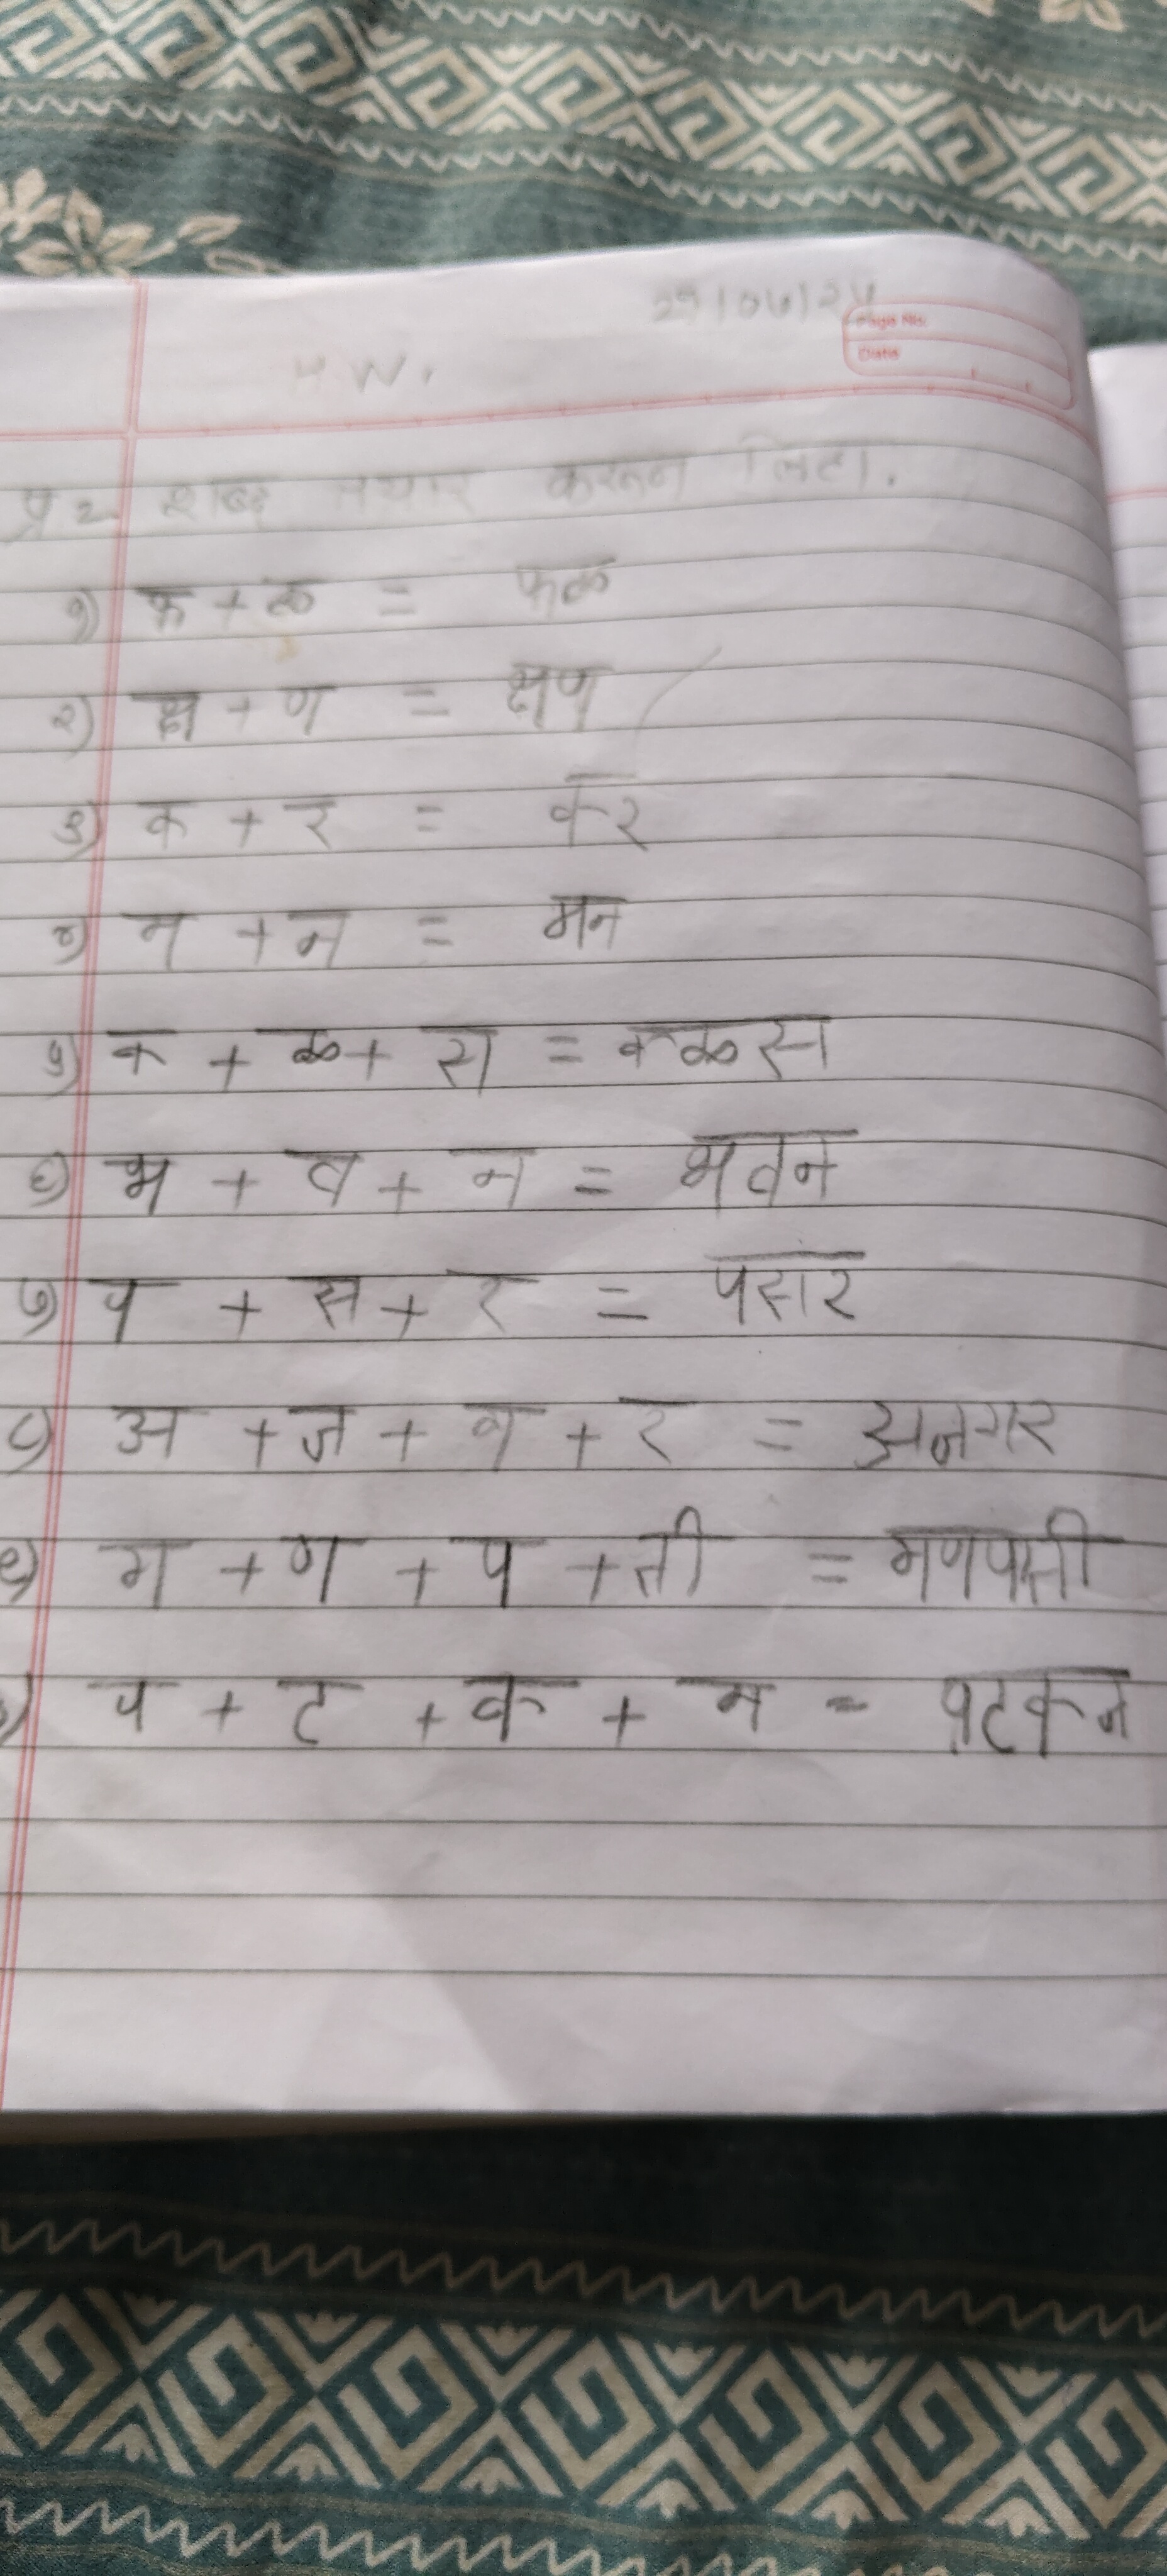 25/06/24
Page No.
Date
H.W.
प्र २ शब्द तयार करून लिहा.
१) फ + ळ = फळ
२) क्ष + ण = क्षण
३) क + र = कर
४) म + न = मन
५) क + ळ + स = कळस
६) भ + व + न = भवन
७) प + स + र = पसर
८) अ + ज + ग + र = अजगर
९) ग + ण + प + ती = गणपती
प + ट + क + न = पटकन